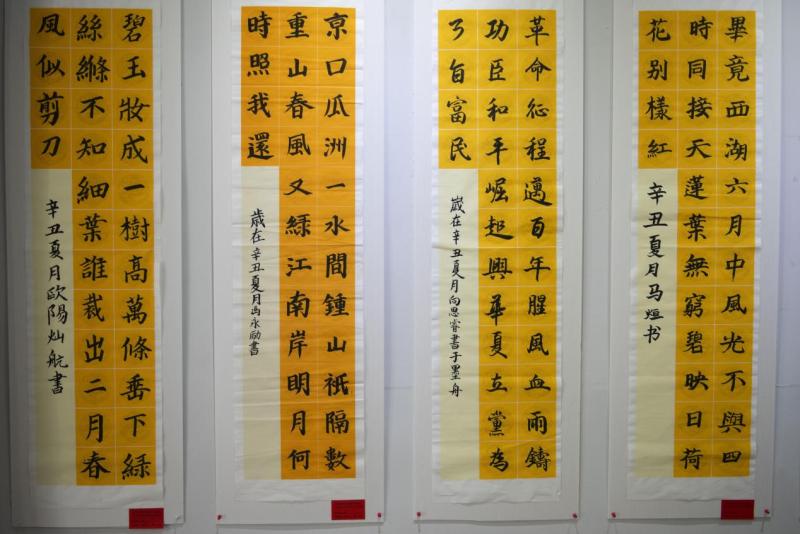 畢竟西湖六月中風光不與四
時同接天蓮葉無窮碧映日荷
花别樣紅
辛丑夏月马烜书
革命征程邁百年腥風血雨鑄
功臣和平崛起興華夏立黨為
旨富民
嵗在辛丑夏月向思睿書于墨舟
京口瓜洲一水間鍾山祇隔數
重山春風又緑江南岸明月何
時照我還
歳在辛丑夏月永励書
碧玉妝成一樹高萬條垂下緑
絲縧不知細葉誰裁出二月春
風似剪刀
辛丑夏月欧陽灿航書